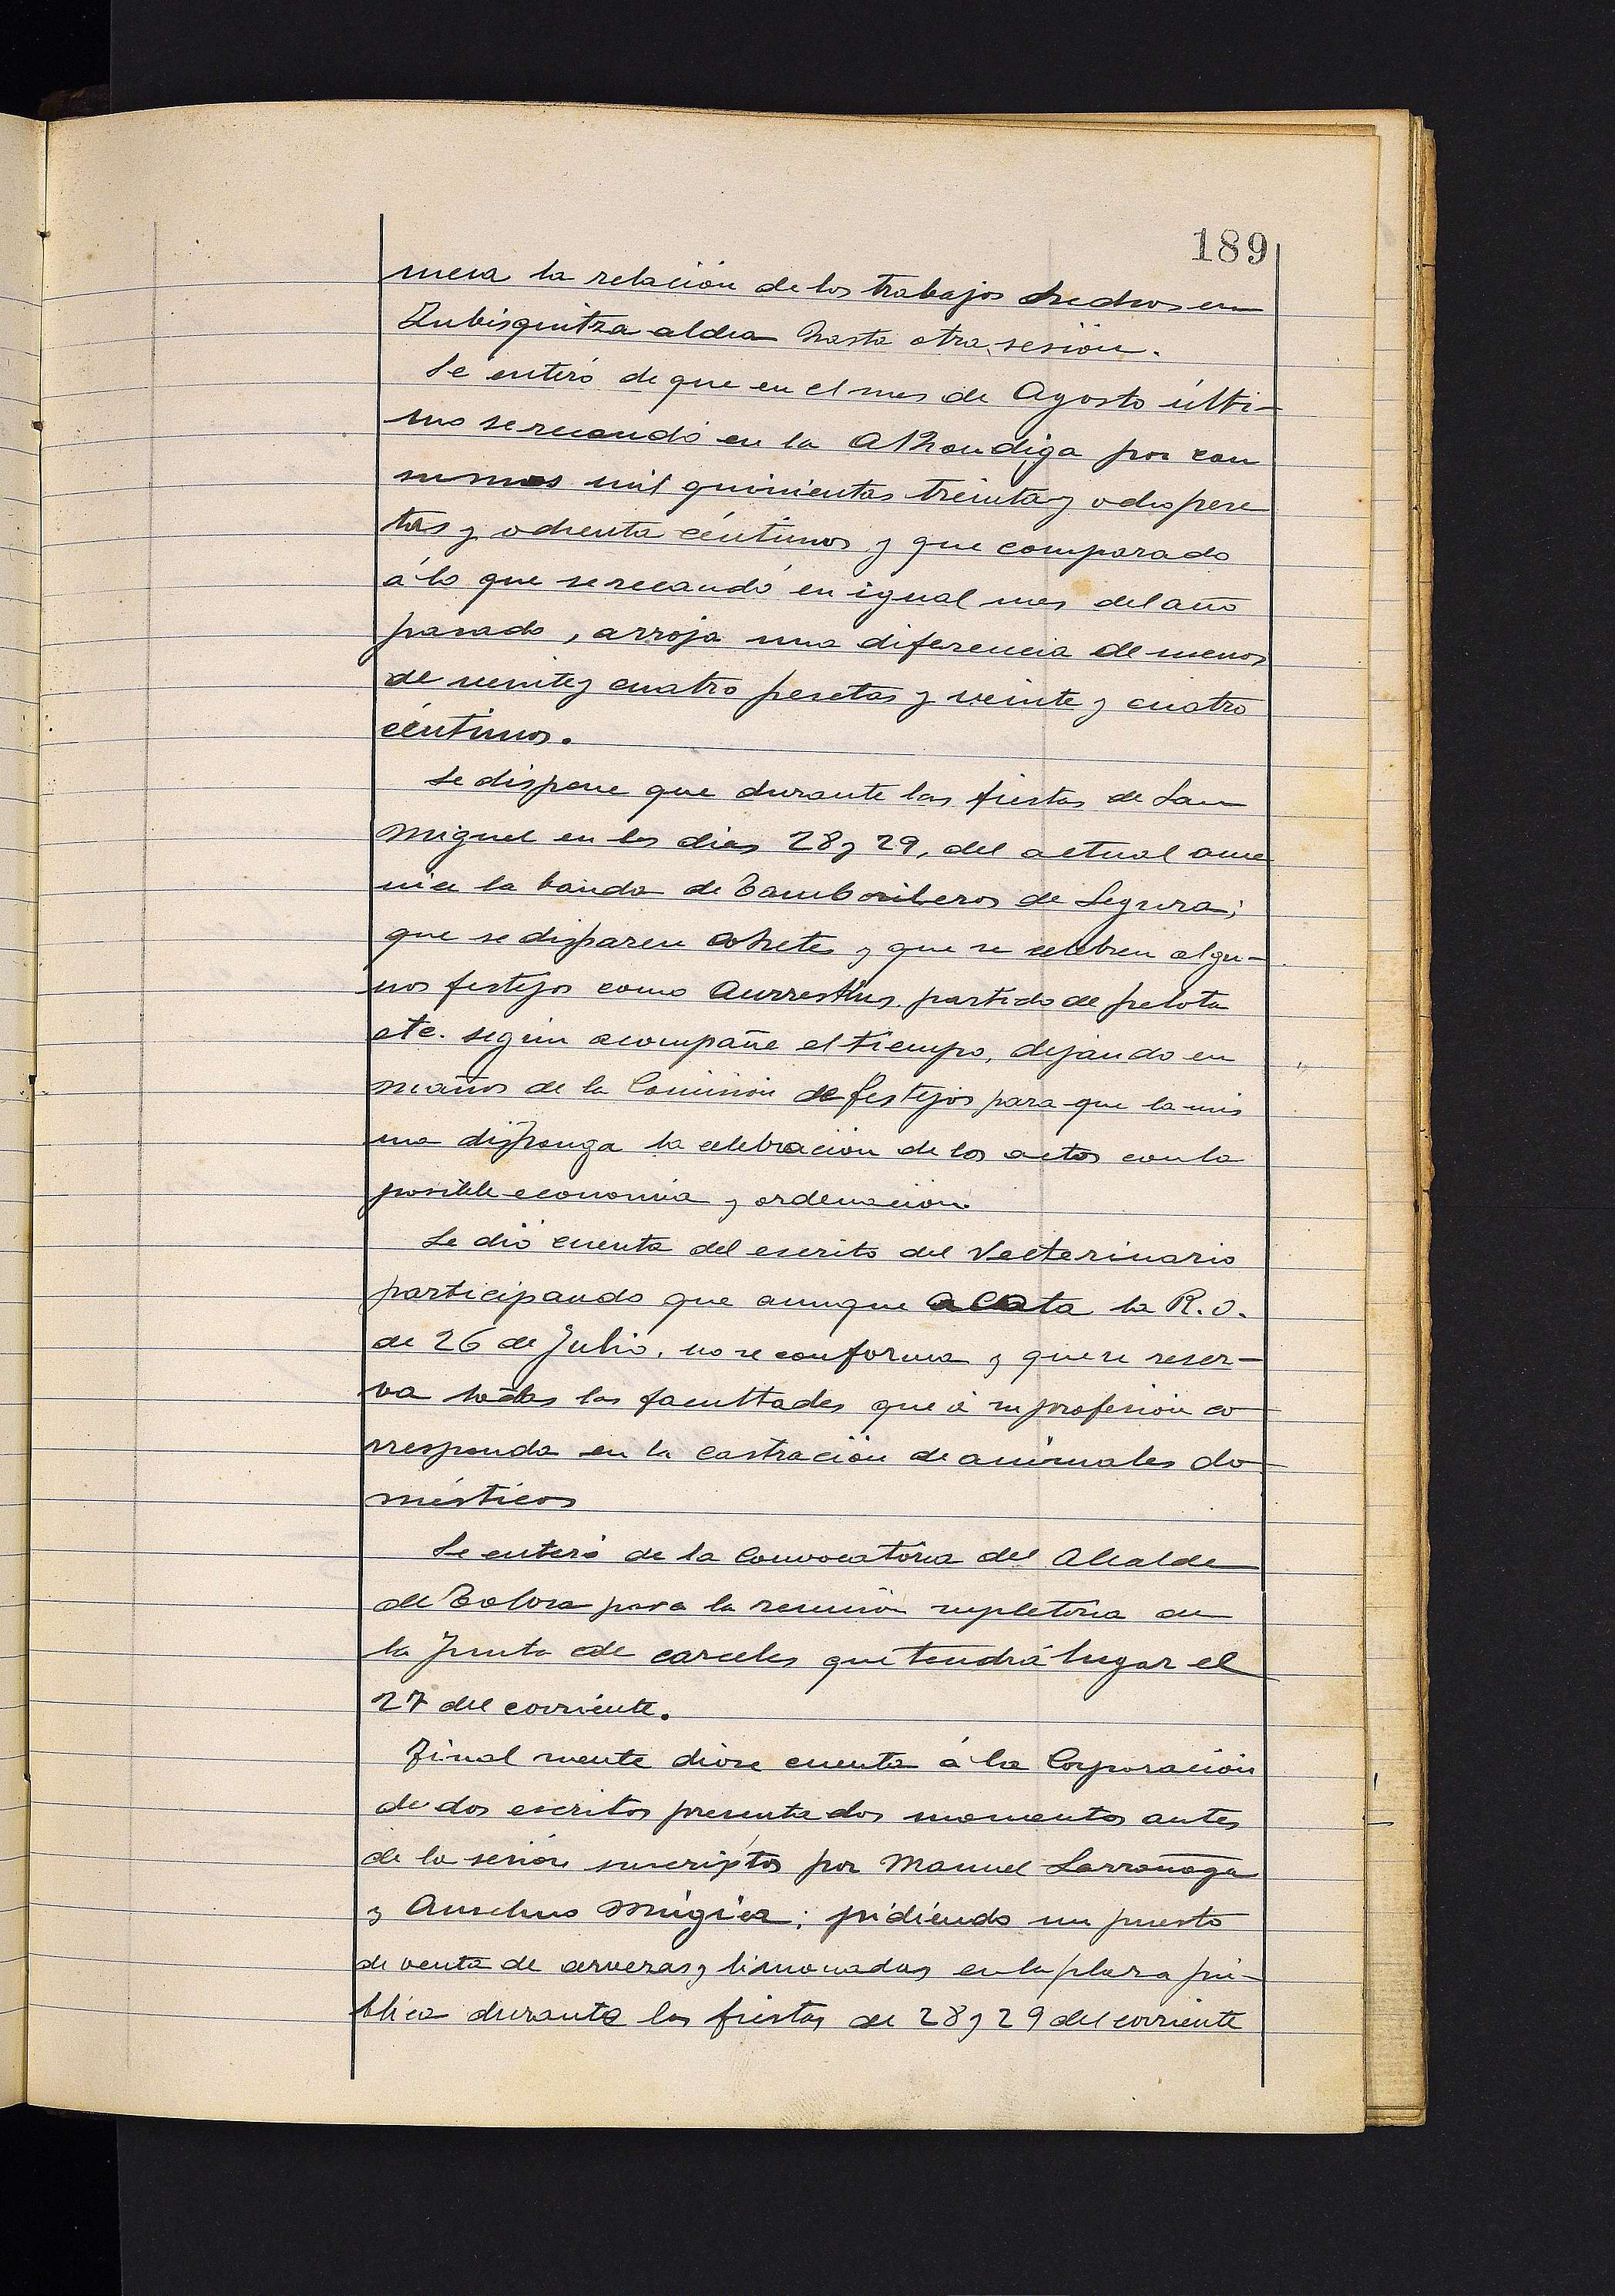 189
mera la relación de los trabajos hechos en
Zubisquitza aldea hasta otra sesión.
Se enteró de que en el mes de Agosto últi-
mo se recaudó en la Alhondiga por con
sumos mil quinientas treinta y ocho pese
tas y ochenta céntimos y que comparado
á lo que se recaudó en igual mes del año
pasado, arroja una diferencia de menos
de veinte y cuatro pesetas y veinte y cuatro
céntimos.
Se dispone que durante las fiestas de San
Miguel en los dias 28 y 29, del actual ame
nice la banda de Tamborileros de Segura;
que se disparen cohetes y que se celebren algu-
nos festejos como Aurreskus, partido de pelota
etc. según acompañe el tiempo, dejando en
manos de la Comisión de festejos para que la mis
ma disponga la celebración de los actos con la
posible economia y ordenación.
Se dió cuenta del escrito del Vecterinario
participando que aunque acata la R.O.
de 26 de Julio, no se conforma y que se reser-
va todas las facultades que á su profesión co
rresponda en la castración de animales do
mésticos
Se enteró de la Convocatoria del Alcalde
de Tolosa para la reunión supletoria de
la Junta de carceles que tendrá lugar el
27 del corriente.
Final mente diose cuenta á la Corporación
de dos escritos presentados momentos antes
de la sesión suscriptos por Manuel Larrañaga
y Anselmo Múgica; pidiendo un puesto
de venta de cervezas y limonadas en la plaza pú-
blica durante las fiestas de 28 y 29 del corriente